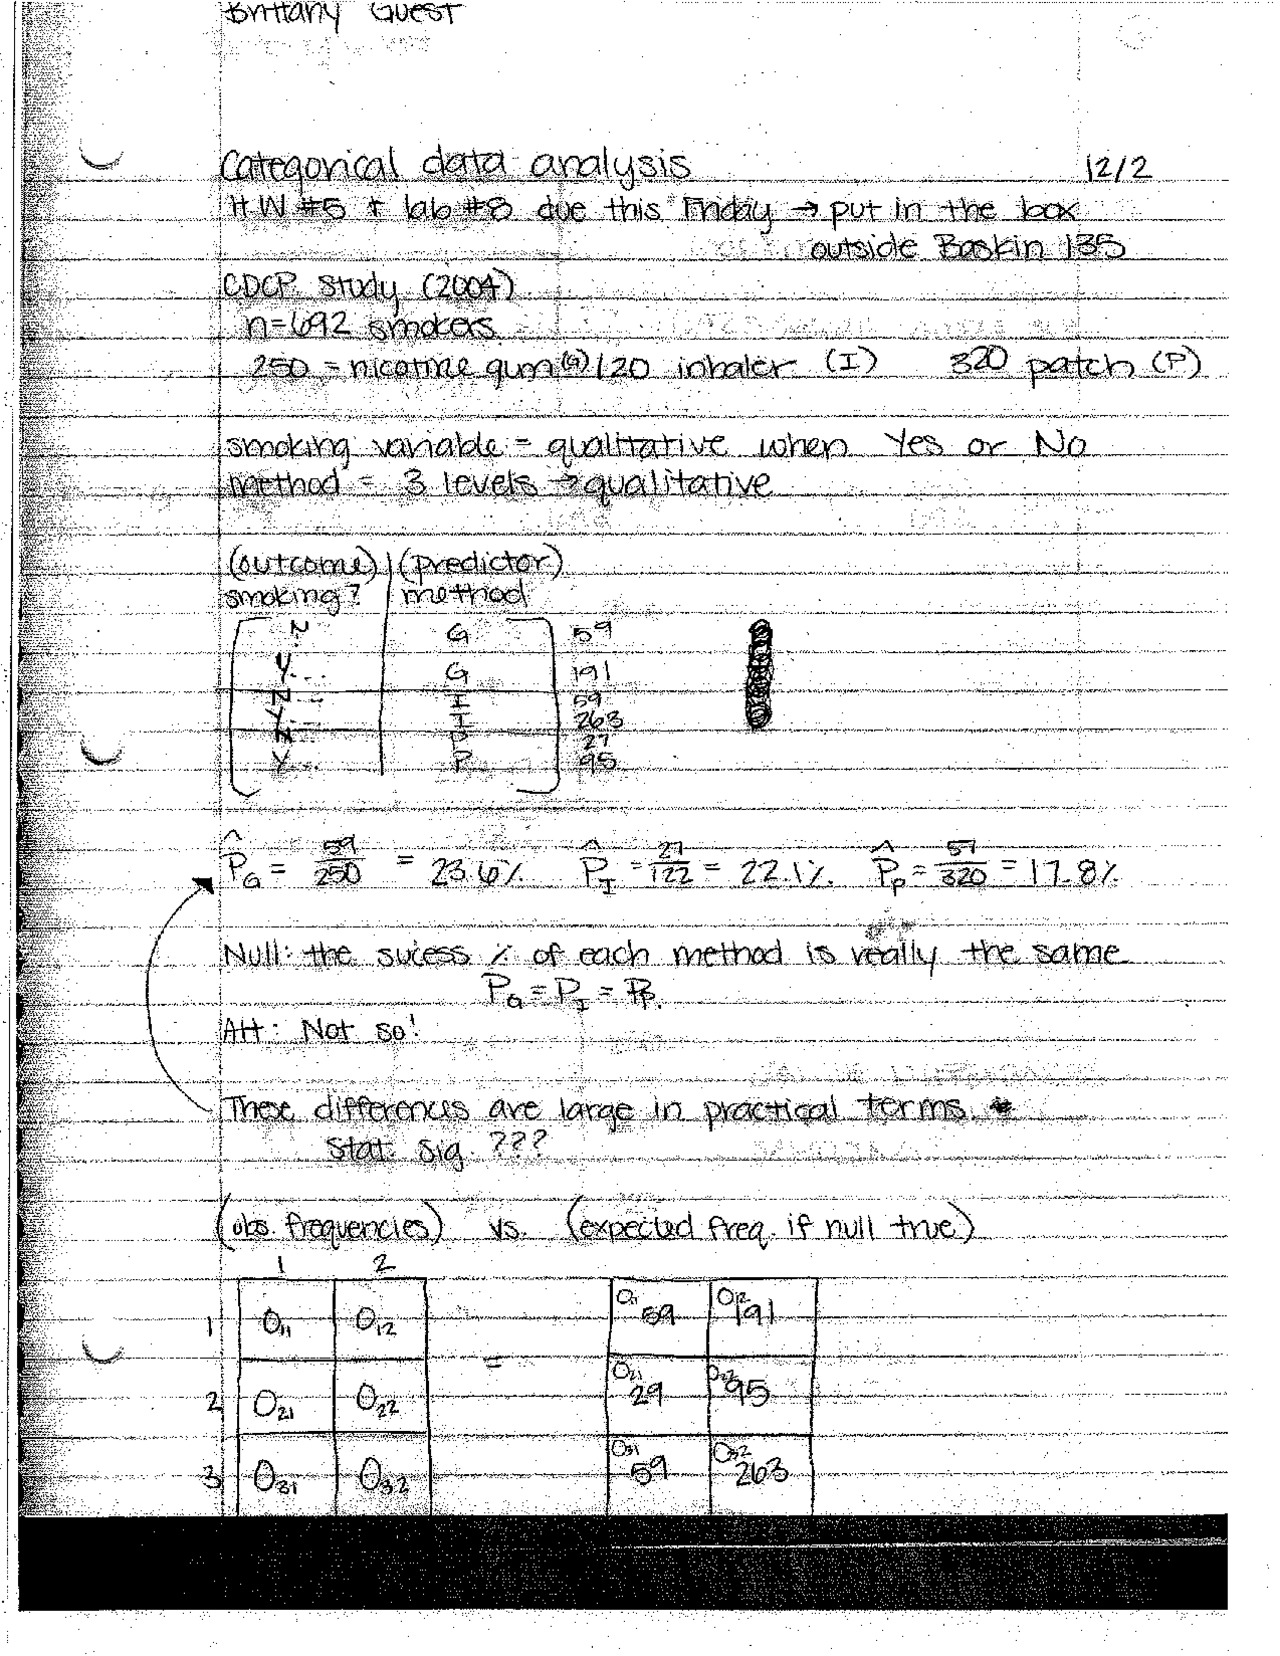 Brittany Guest
Categorical data analysis 12/2
HW #5 + lab #8 due this Friday → put in the box
outside Baskin 135
CDCP Study (2004)
n=692 smokers
250 = nicotine gum (G) 120 inhaler (I) 320 patch (P)
smoking variable = qualitative when Yes or No
method = 3 levels → qualitative
(outcome) | (predictor)
smoking? | method
N G 59
Y... G 191
N... I 59
Y... I 263
N... P 27
Y... P 95
P̂G = 59/250 = 23.6% P̂I = 27/122 = 22.1% P̂P = 57/320 = 17.8%
Null: the sucess % of each method is really the same
PG = PI = PP.
Alt: Not so!
These differences are large in practical terms.
Stat. sig. ???
(obs. frequencies) vs. (expected freq. if null true)
1 2
1 O11 O12 = O11 59 O12 191
2 O21 O22 O21 29 O22 95
3 O31 O32 O31 59 O32 263